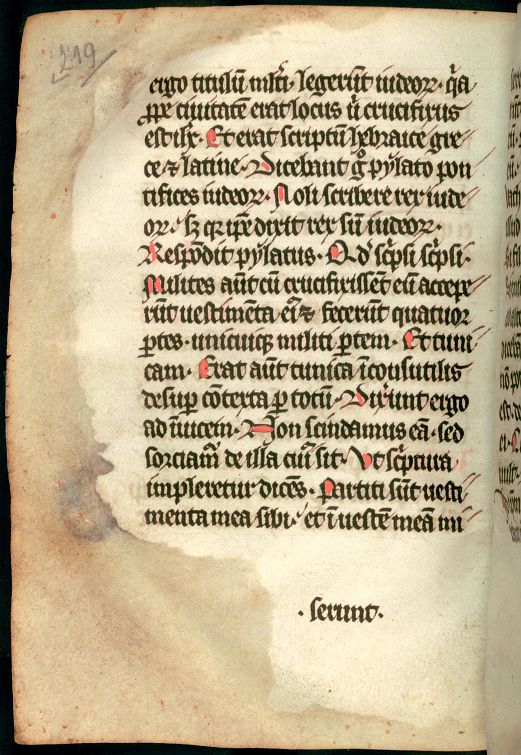 219
ergo titulū mĺti legerūt iudeoꝝ · q̄a
ꝓpe ciuitatē erat locus u̇ crucifixus
est ih̄c · Et erat scriptū hebraice gre
ce ⁊ latine · Dicebant g̊ pylato pon
tifices iudeoꝝ · Noli scribere rex iude
oꝝ · sꝫ qꝛ ip̄e dixit rex sū iudeoꝝ ·
Respōdit pylatus · Qd̓ sc̄psi sc̄psi ·
Milites aūt cū crucifixissent eū accepe
rūt uestimēta eiꝰ ⁊ fecerūt quatuor
ꝑtes · unicuiqꝫ militi ꝑtem · Et tuni
cam · Erat aūt tunica īconsutilis
desuꝑ cōtexta ꝑ totū · Dixerunt ergo
ad īuicem · Non scindamus eā · sed
sorciam̄ de illa cuiꝰ sit · Vt sc̄ptura
impleretur dicēs · Partiti sūt uesti
menta mea sibi · et ī uestē meā mi
· serunt ·